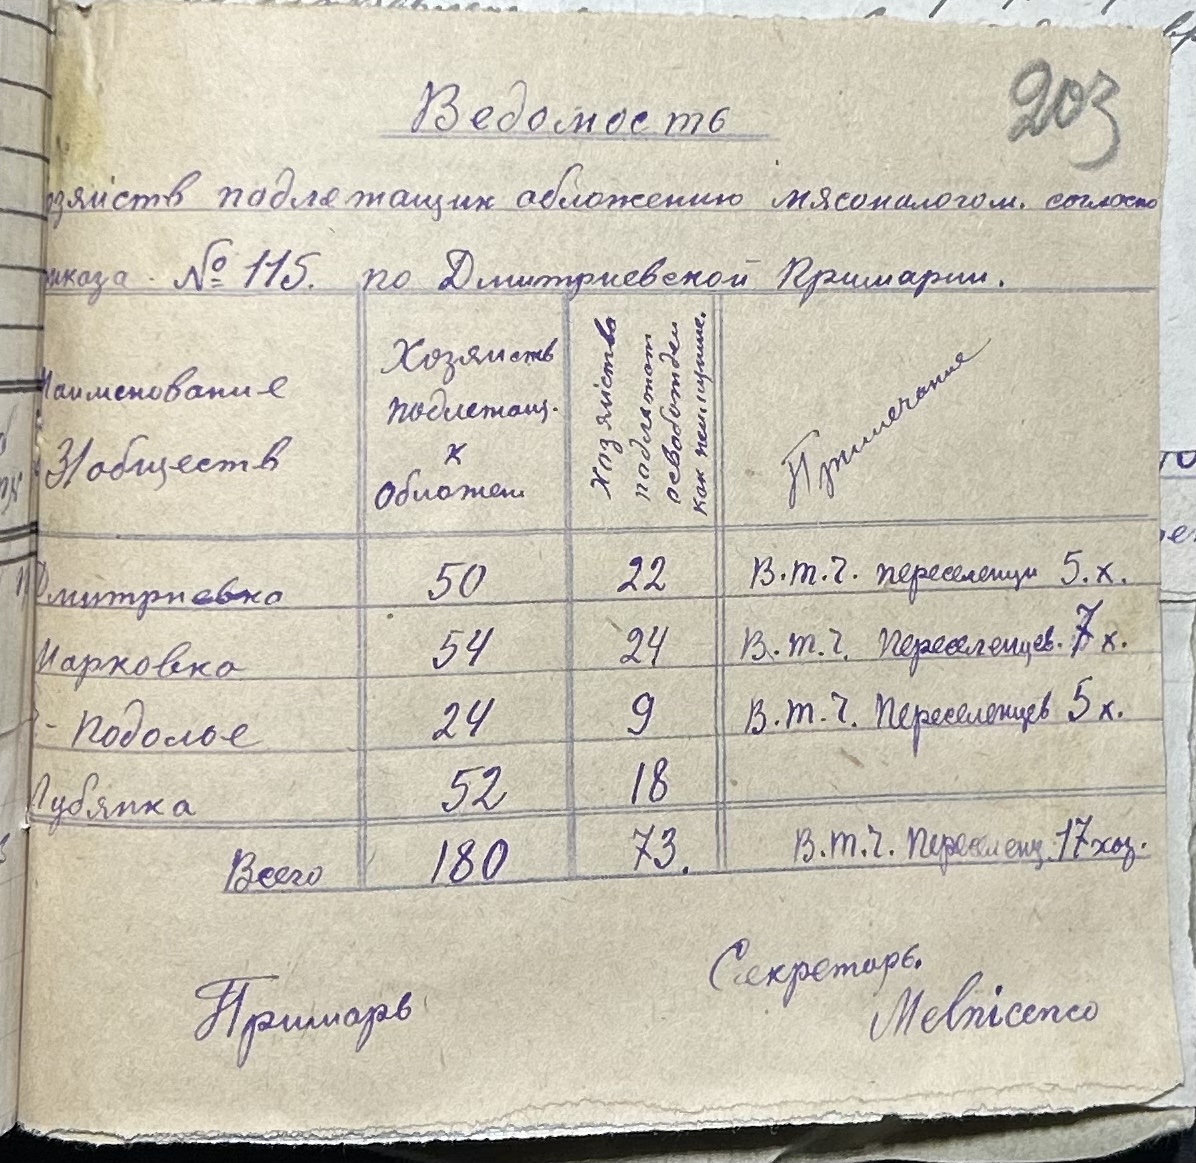 203
Ведомость
озяйств подлежащих обложению мясоналогом. согласно
иказа № 115. по Дмитриевской Примарии.
Наименование
З/обществ
Хозяиств
подлежащ.
к
Обложен
Хозяйства
подлежат
освобожден
как неимущие.
Примечание
Дмитриевка 50 22 В.т.ч. переселенци 5.х.
Марковка 54 24 В.т.ч. Переселенцев. 7 х.
- Подолье 24 9 В.т.ч. Переселенцев 5 х.
Лубянка 52 18
Всего 180 73. В.т.ч. Переселенц. 17 хоз.
Секретарь.
Примарь Melnicenco